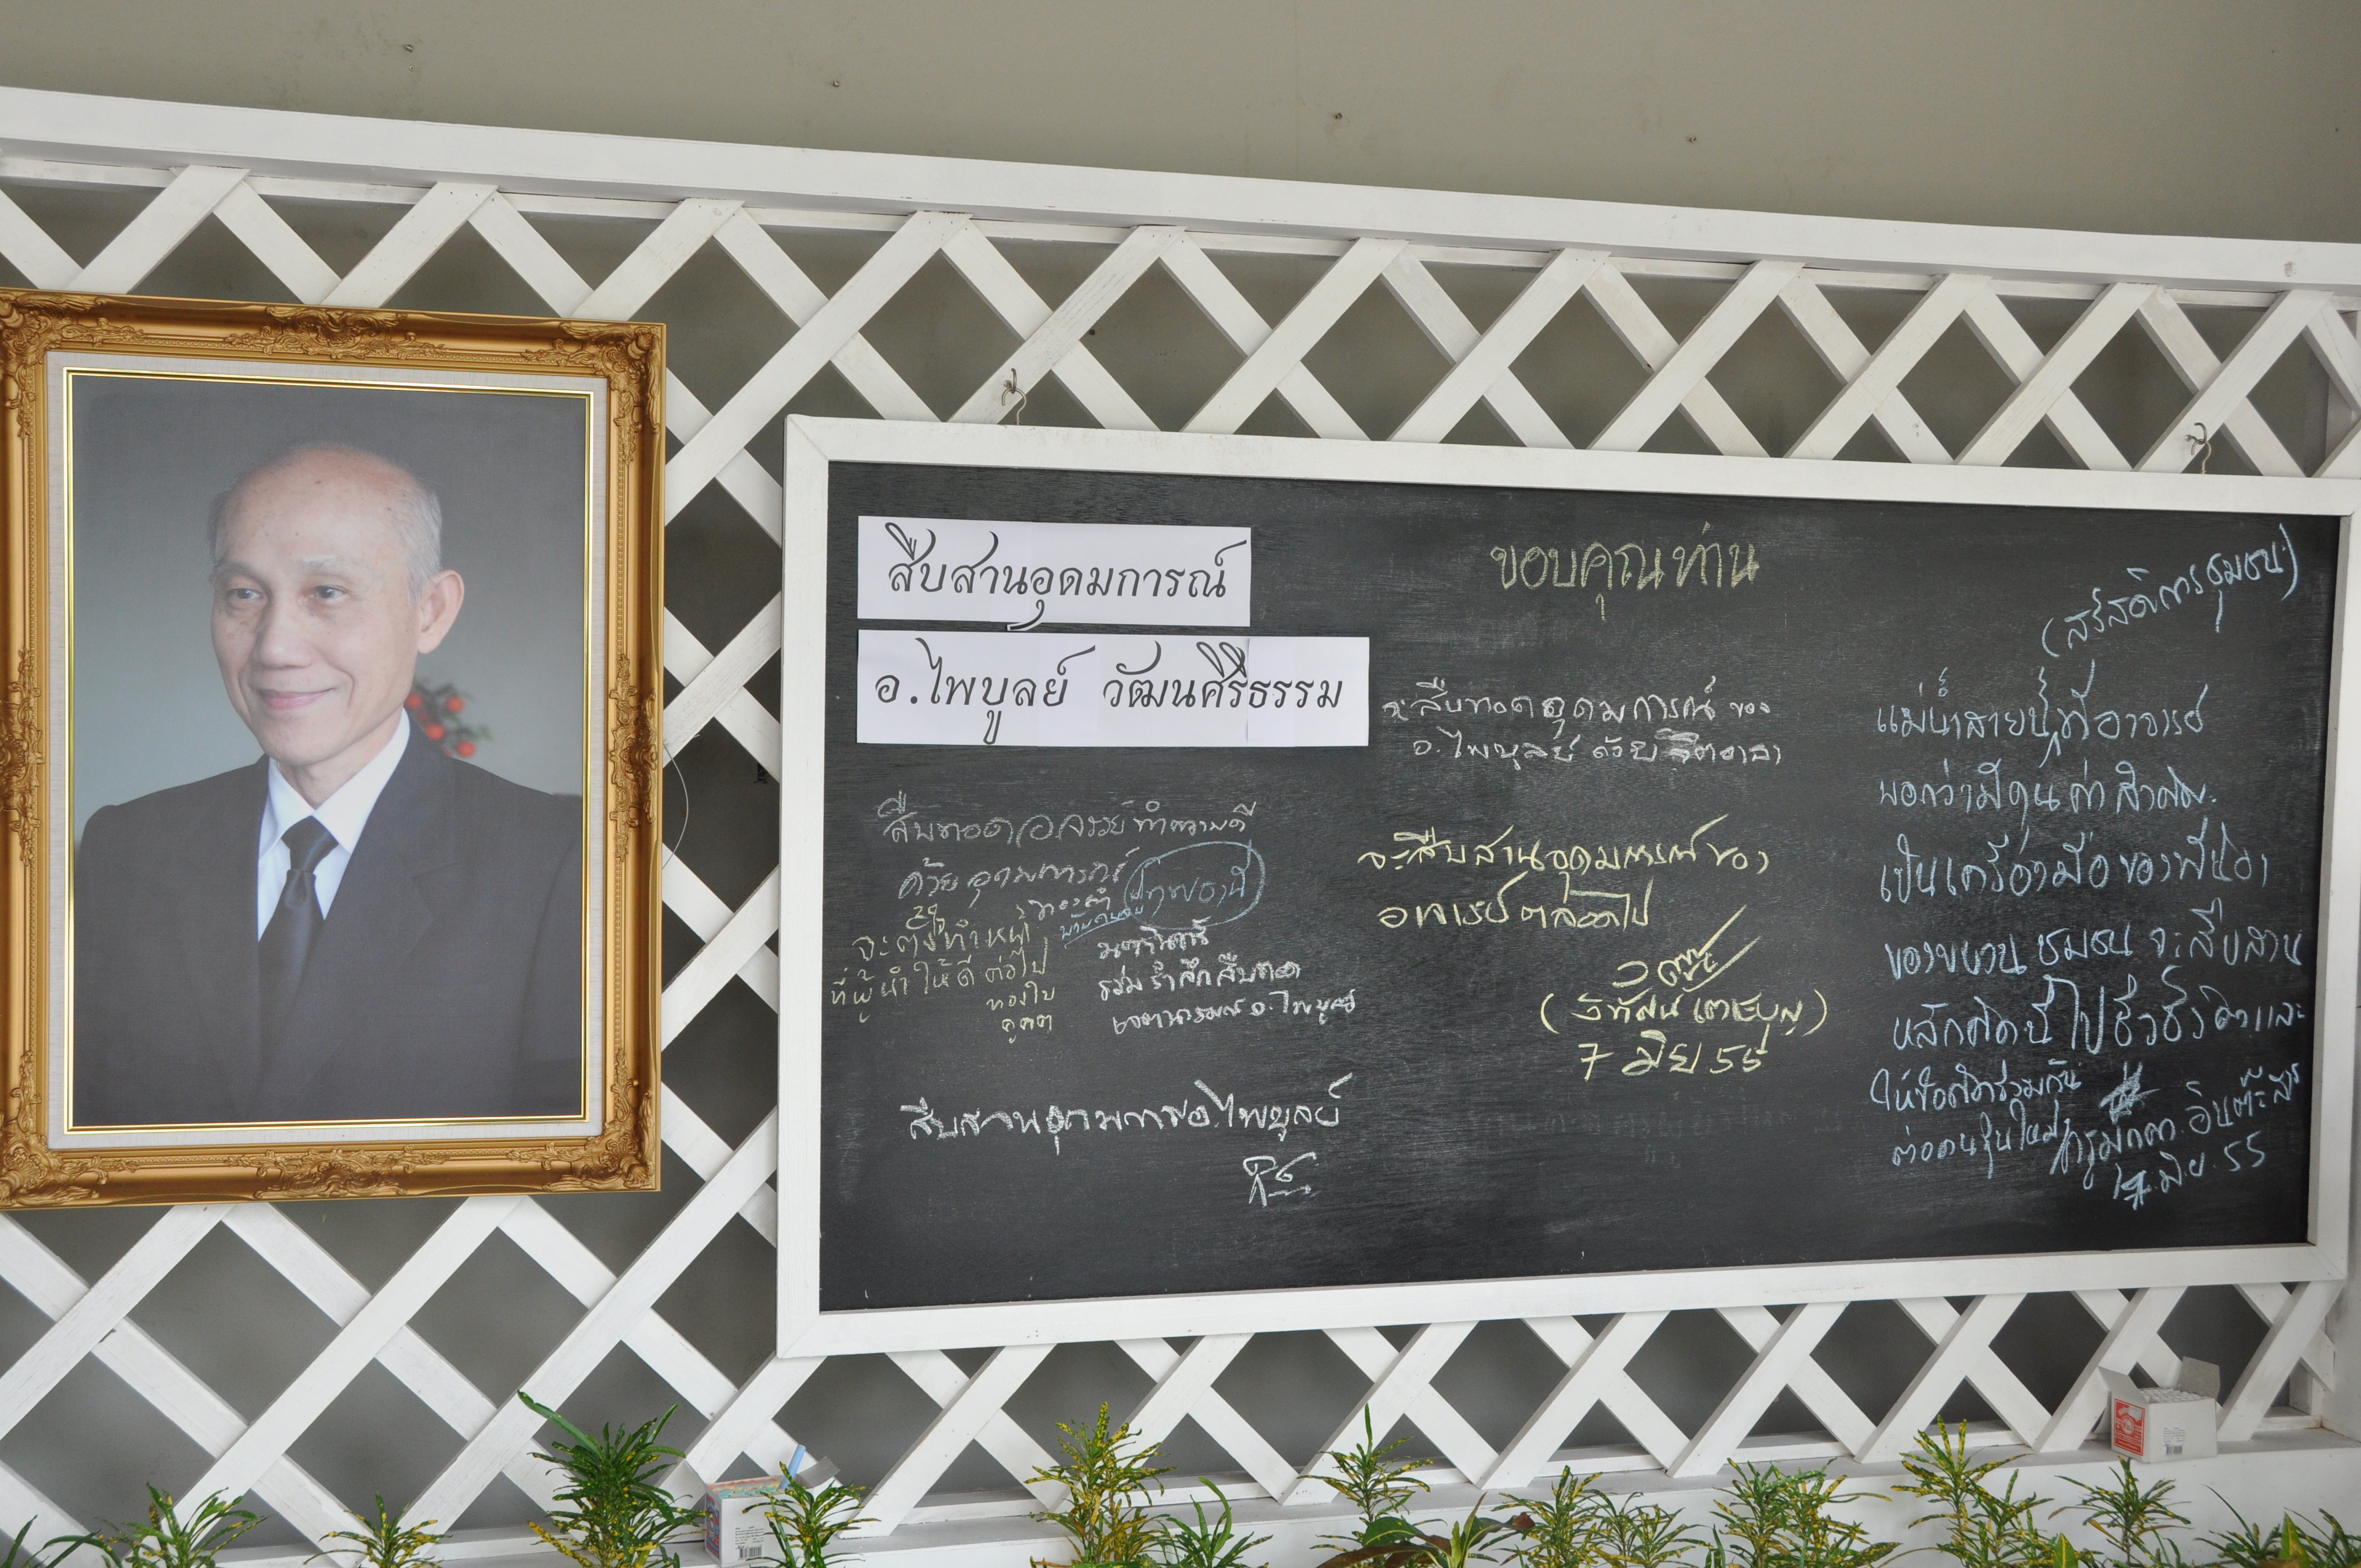 สืบสานอุดมการณ์
อ.ไพบูลย์ วัฒนศิริธรรม
ขอบคุณท่าน
จะสืบทอดอุดมการณ์ของ
อ.ไพบูลย์ ด้วยจิตอาสา
จะสืบสานอุดมการณ์ของ
อาจารย์ตลอดไป
7 มิย 55
สืบทอดอาจารย์ทำความดี
ด้วยอุดมการณ์
จะตั้งใจทำหน้า
ที่ผู้นำให้ดีต่อไป
ทองใบ
ร่วมรำลึกสืบทอด
เจตนารมณ์ อ.ไพบูลย์
สืบสานอุดมการอ.ไพบูลย์
(สวัสดิการชุมชน)
แม่น้ำสายนี้ที่อาจารย์
บอกว่ามีคุณค่า
เป็นเครื่องมือของพี่น้อง
ของขบวนชุมชน จะสืบสาน
หลักคิดนี้ไปชั่วชีวิตและ
ต่อคนรุ่นใหม่
มิ.ย. 55